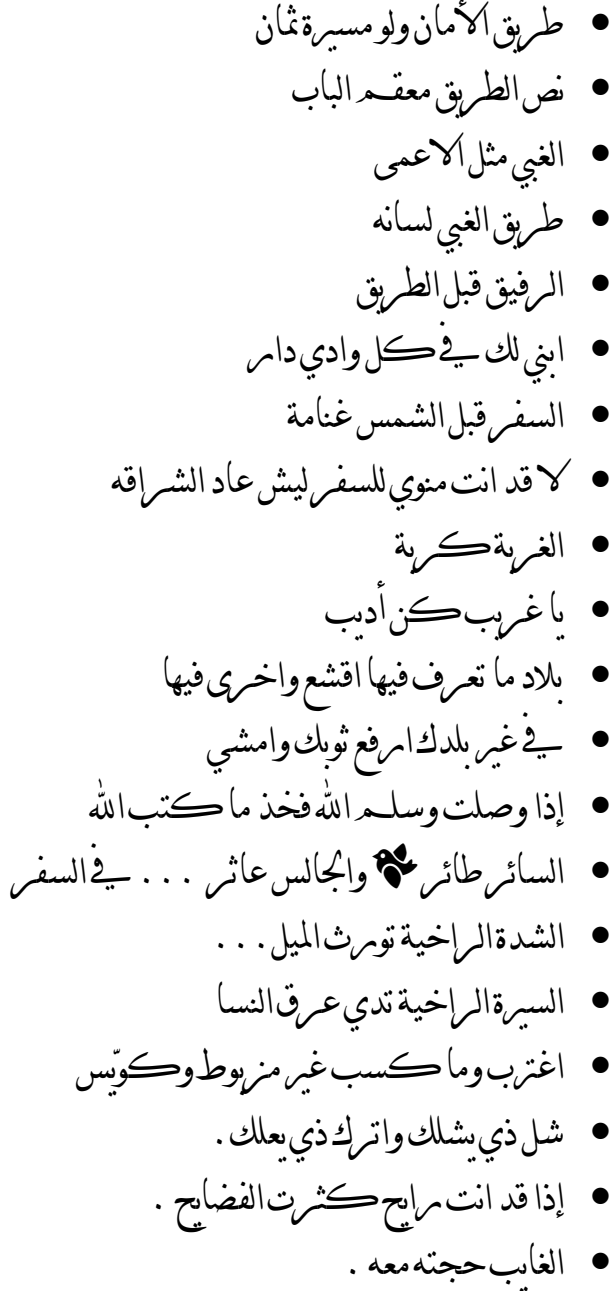 • طريق الأمان ولو مسيرة ثمان
• نص الطريق معقم الباب
• الغبي مثل الاعمى
• طريق الغبي لسانه
• الرفيق قبل الطريق
• ابني لك في كل وادي دار
• السفر قبل الشمس غنامة
• لا قد انت منوي للسفر ليش عاد الشراقه
• الغربة كربة
• يا غريب كن أديب
• بلاد ما تعرف فيها اقشع واخرى فيها
• في غير بلدك ارفع ثوبك وامشي
• إذا وصلت وسلم الله فخذ ما كتب الله
• السائر طائر والجالس عاثر ... في السفر
• الشدة الراخية تورث الميل...
• السيرة الراخية تدي عرق النسا
• اغترب وما كسب غير مزبوط وكوّيس
• شل ذي يشلك واترك ذي يعلك.
• إذا قد انت رايح كثرت الفضايح .
• الغايب حجته معه .